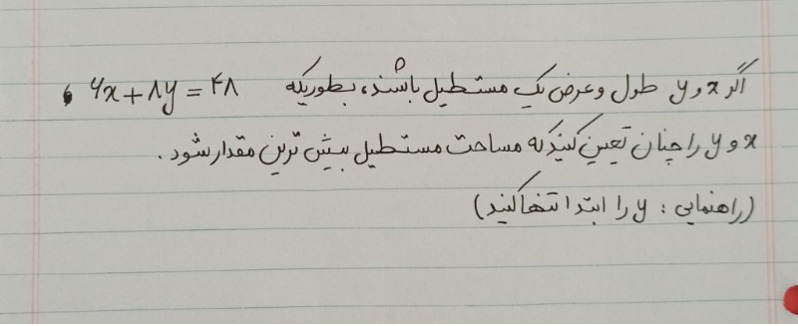 اگر x و y طول و عرض یک مستطیل باشند، بطوریکه ۶x + ۸y = ۴۸،
x و y را چنان تعیین کنید که مساحت مستطیل بیش ترین مقدار شود.
(راهنمایی: y را ابتدا تنها کنید)